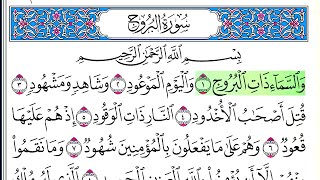 سُورَةُ الْبُرُوجِ
بِسْمِ اللَّهِ الرَّحْمَٰنِ الرَّحِيمِ
وَالسَّمَاءِ ذَاتِ الْبُرُوجِ ١ وَالْيَوْمِ الْمَوْعُودِ ٢ وَشَاهِدٍ وَمَشْهُودٍ ٣
قُتِلَ أَصْحَابُ الْأُخْدُودِ ٤ النَّارِ ذَاتِ الْوَقُودِ ٥ إِذْ هُمْ عَلَيْهَا
قُعُودٌ ٦ وَهُمْ عَلَىٰ مَا يَفْعَلُونَ بِالْمُؤْمِنِينَ شُهُودٌ ٧ وَمَا نَقَمُوا